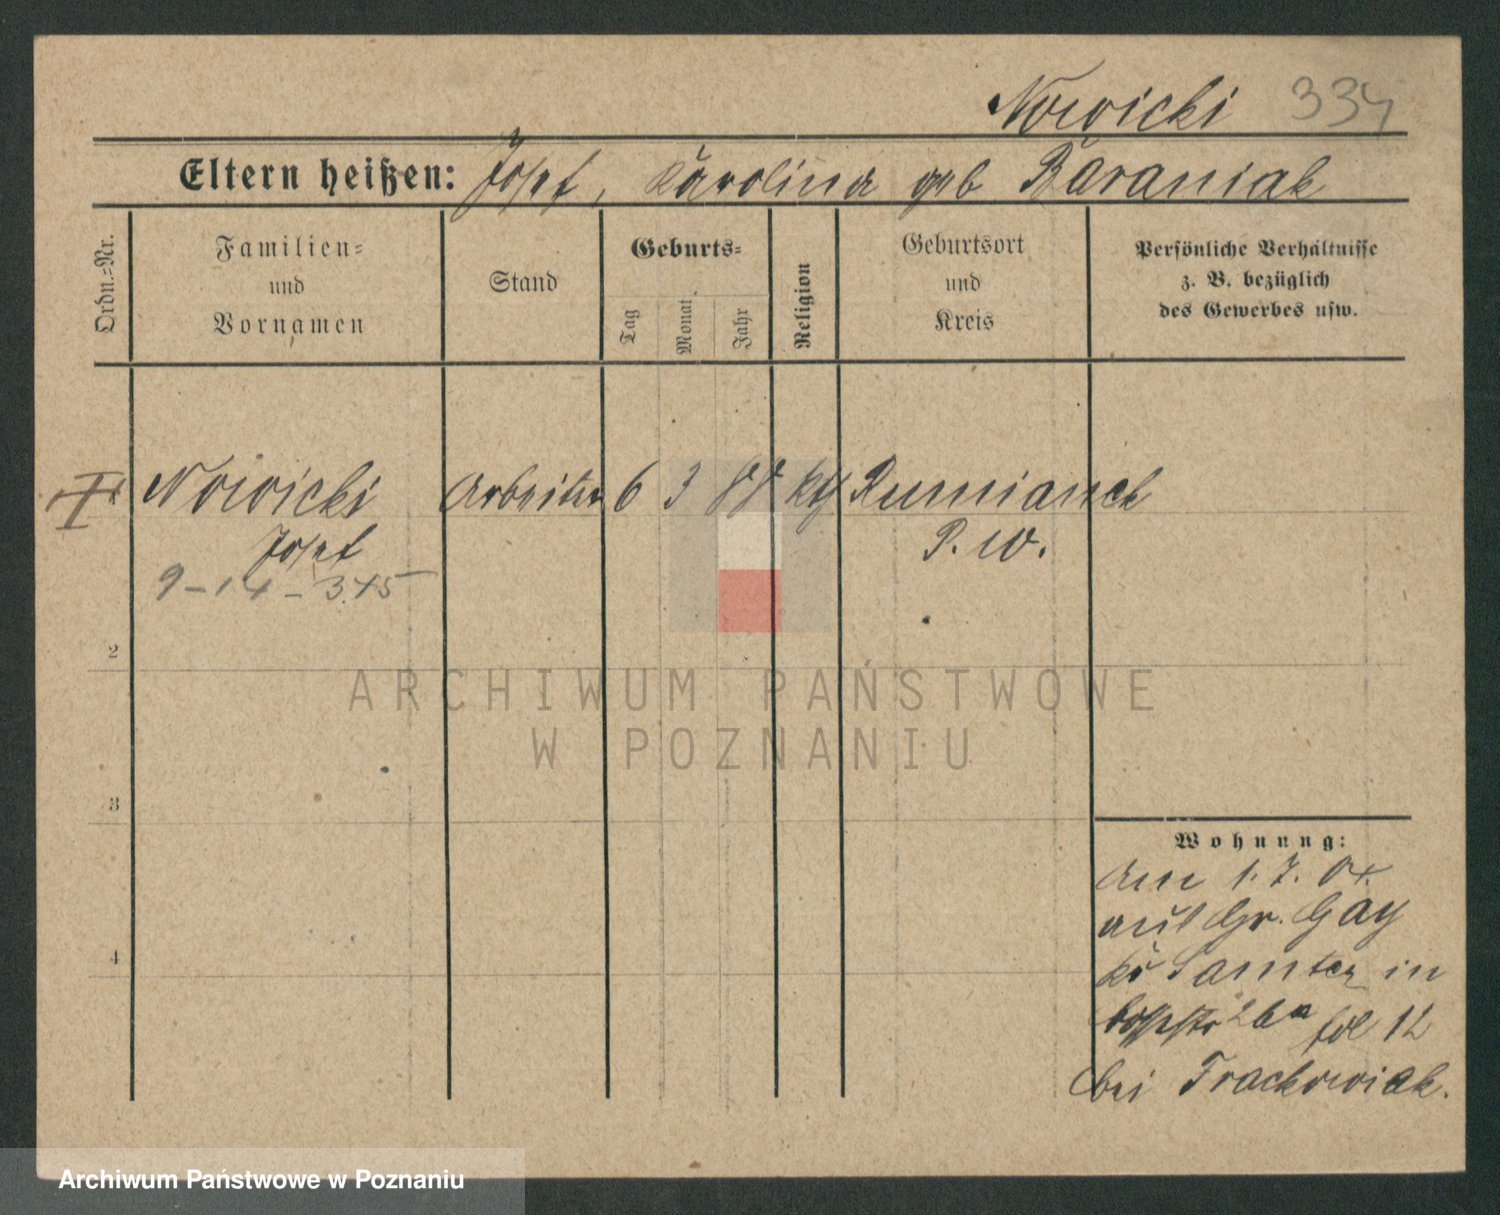 Nowicki 334
Eltern heißen: Josef, Karolina geb Baraniak
Ordn.=Nr.
Familien=
und
Vornamen
Stand
Geburts=
Tag
Monat
Jahr
Religion
Geburtsort
und
Kreis
Persönliche Verhältnisse
z. B. bezüglich
des Gewerbes usw.
Nowicki Arbeiter 6 3 88 kth Rumianek
Josef P. W.
9-14-345
2
3
4
Wohnung:
am 1. 7. 04.
aus Gr. Gay
Kr Samter in
26a fol 12
bei Trachowiak.
ARCHIWUM PAŃSTWOWE
W POZNANIU
Archiwum Państwowe w Poznaniu